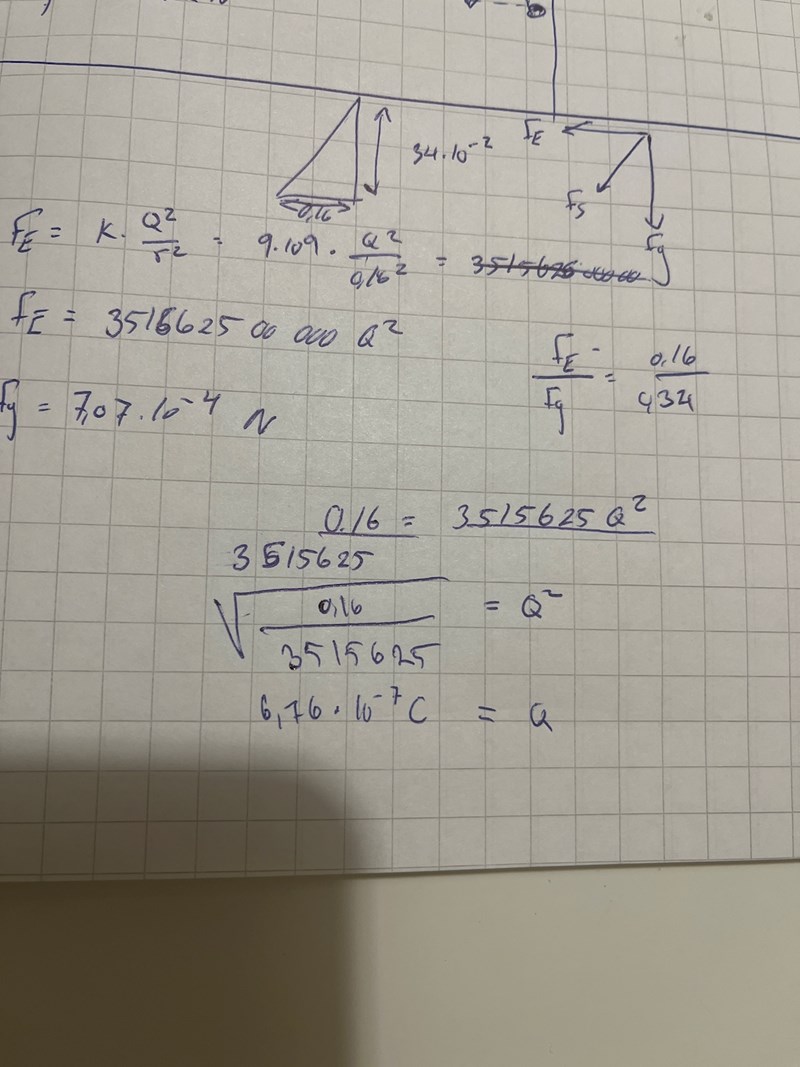 34·10⁻²
0,16
F_E
F_S
F_g
F_E = K · Q²/r² = 9·10⁹ · Q²/0,16² = 3515625 00000
F_E = 3515625 00 000 Q²
F_E / F_g = 0,16 / 0,34
F_g = 7,07·10⁻⁴ N
0,16 = 3515625 Q²
3515625
√(0,16 / 3515625) = Q²
6,76·10⁻⁷ C = Q